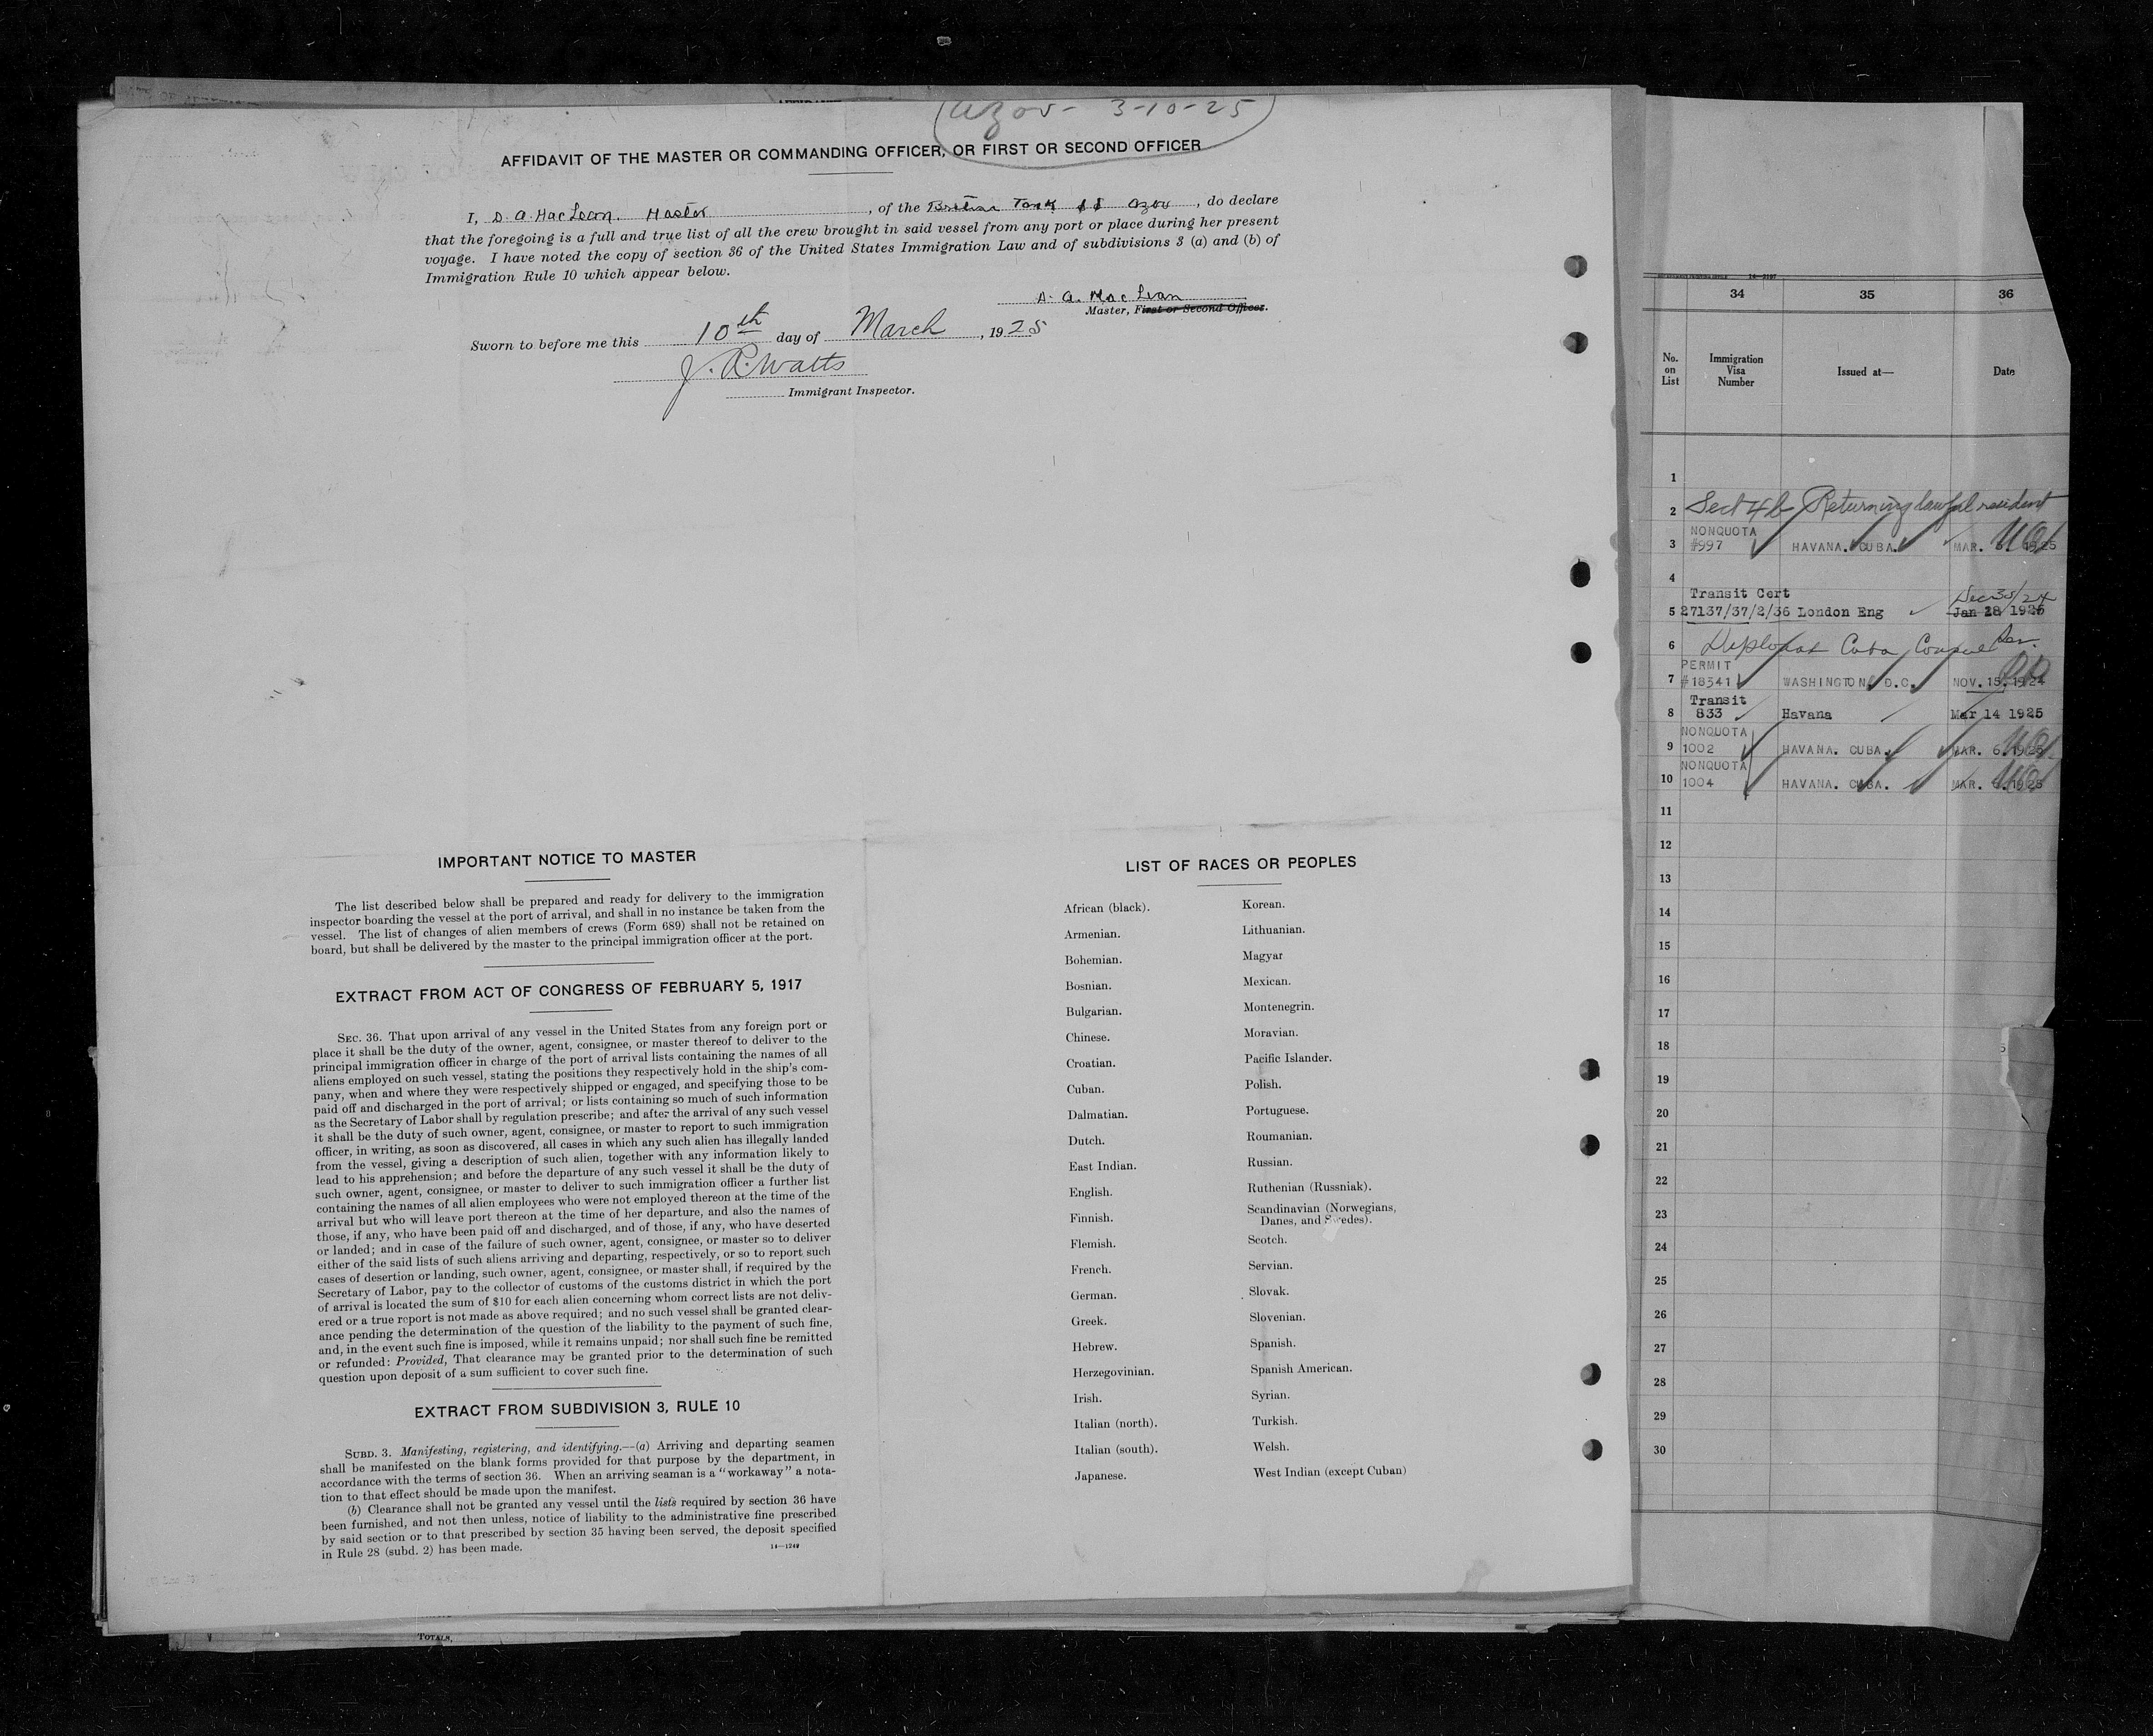 (Azov - 3-10-25)
AFFIDAVIT OF THE MASTER OR COMMANDING OFFICER, OR FIRST OR SECOND OFFICER
I, D. A. MacLean. Master, of the British Tank SS Azov, do declare
that the foregoing is a full and true list of all the crew brought in said vessel from any port or place during her present
voyage. I have noted the copy of section 36 of the United States Immigration Law and of subdivisions 3 (a) and (b) of
Immigration Rule 10 which appear below.
D. A. MacLean
Master, First or Second Officer.
Sworn to before me this 10th day of March, 1925
J. R. Watts
Immigrant Inspector.
IMPORTANT NOTICE TO MASTER
The list described below shall be prepared and ready for delivery to the immigration
inspector boarding the vessel at the port of arrival, and shall in no instance be taken from the
vessel. The list of changes of alien members of crews (Form 689) shall not be retained on
board, but shall be delivered by the master to the principal immigration officer at the port.
EXTRACT FROM ACT OF CONGRESS OF FEBRUARY 5, 1917
SEC. 36. That upon arrival of any vessel in the United States from any foreign port or
place it shall be the duty of the owner, agent, consignee, or master thereof to deliver to the
principal immigration officer in charge of the port of arrival lists containing the names of all
aliens employed on such vessel, stating the positions they respectively hold in the ship's com-
pany, when and where they were respectively shipped or engaged, and specifying those to be
paid off and discharged in the port of arrival; or lists containing so much of such information
as the Secretary of Labor shall by regulation prescribe; and after the arrival of any such vessel
it shall be the duty of such owner, agent, consignee, or master to report to such immigration
officer, in writing, as soon as discovered, all cases in which any such alien has illegally landed
from the vessel, giving a description of such alien, together with any information likely to
lead to his apprehension; and before the departure of any such vessel it shall be the duty of
such owner, agent, consignee, or master to deliver to such immigration officer a further list
containing the names of all alien employees who were not employed thereon at the time of the
arrival but who will leave port thereon at the time of her departure, and also the names of
those, if any, who have been paid off and discharged, and of those, if any, who have deserted
or landed; and in case of the failure of such owner, agent, consignee, or master so to deliver
either of the said lists of such aliens arriving and departing, respectively, or so to report such
cases of desertion or landing, such owner, agent, consignee, or master shall, if required by the
Secretary of Labor, pay to the collector of customs of the customs district in which the port
of arrival is located the sum of $10 for each alien concerning whom correct lists are not deliv-
ered or a true report is not made as above required; and no such vessel shall be granted clear-
ance pending the determination of the question of the liability to the payment of such fine,
and, in the event such fine is imposed, while it remains unpaid; nor shall such fine be remitted
or refunded: Provided, That clearance may be granted prior to the determination of such
question upon deposit of a sum sufficient to cover such fine.
EXTRACT FROM SUBDIVISION 3, RULE 10
SUBD. 3. Manifesting, registering, and identifying.—(a) Arriving and departing seamen
shall be manifested on the blank forms provided for that purpose by the department, in
accordance with the terms of section 36. When an arriving seaman is a "workaway" a nota-
tion to that effect should be made upon the manifest.
(b) Clearance shall not be granted any vessel until the lists required by section 36 have
been furnished, and not then unless, notice of liability to the administrative fine prescribed
by said section or to that prescribed by section 35 having been served, the deposit specified
in Rule 28 (subd. 2) has been made.
14—1249
TOTALS,
LIST OF RACES OR PEOPLES
African (black).
Armenian.
Bohemian.
Bosnian.
Bulgarian.
Chinese.
Croatian.
Cuban.
Dalmatian.
Dutch.
East Indian.
English.
Finnish.
Flemish.
French.
German.
Greek.
Hebrew.
Herzegovinian.
Irish.
Italian (north).
Italian (south).
Japanese.
Korean.
Lithuanian.
Magyar
Mexican.
Montenegrin.
Moravian.
Pacific Islander.
Polish.
Portuguese.
Roumanian.
Russian.
Ruthenian (Russniak).
Scandinavian (Norwegians,
Danes, and Swedes).
Scotch.
Servian.
Slovak.
Slovenian.
Spanish.
Spanish American.
Syrian.
Turkish.
Welsh.
West Indian (except Cuban)
14—3197
34 35 36
No. on List Immigration Visa Number Issued at— Date
1
2 Sect 4b Returning lawful resident
NONQUOTA
3 #997 HAVANA. CUBA. MAR. 6. 1925
4
Transit Cert Dec 30/24
5 27137/37/2/36 London Eng Jan 28 1925
6 Diplomat Cuba Consul
PERMIT
7 #18341 WASHINGTON, D.C. NOV. 15. 1924
Transit
8 833 Havana Mar 14 1925
NONQUOTA
9 1002 HAVANA. CUBA. MAR. 6. 1925
NONQUOTA
10 1004 HAVANA. CUBA. MAR. 6. 1925
11
12
13
14
15
16
17
18
19
20
21
22
23
24
25
26
27
28
29
30